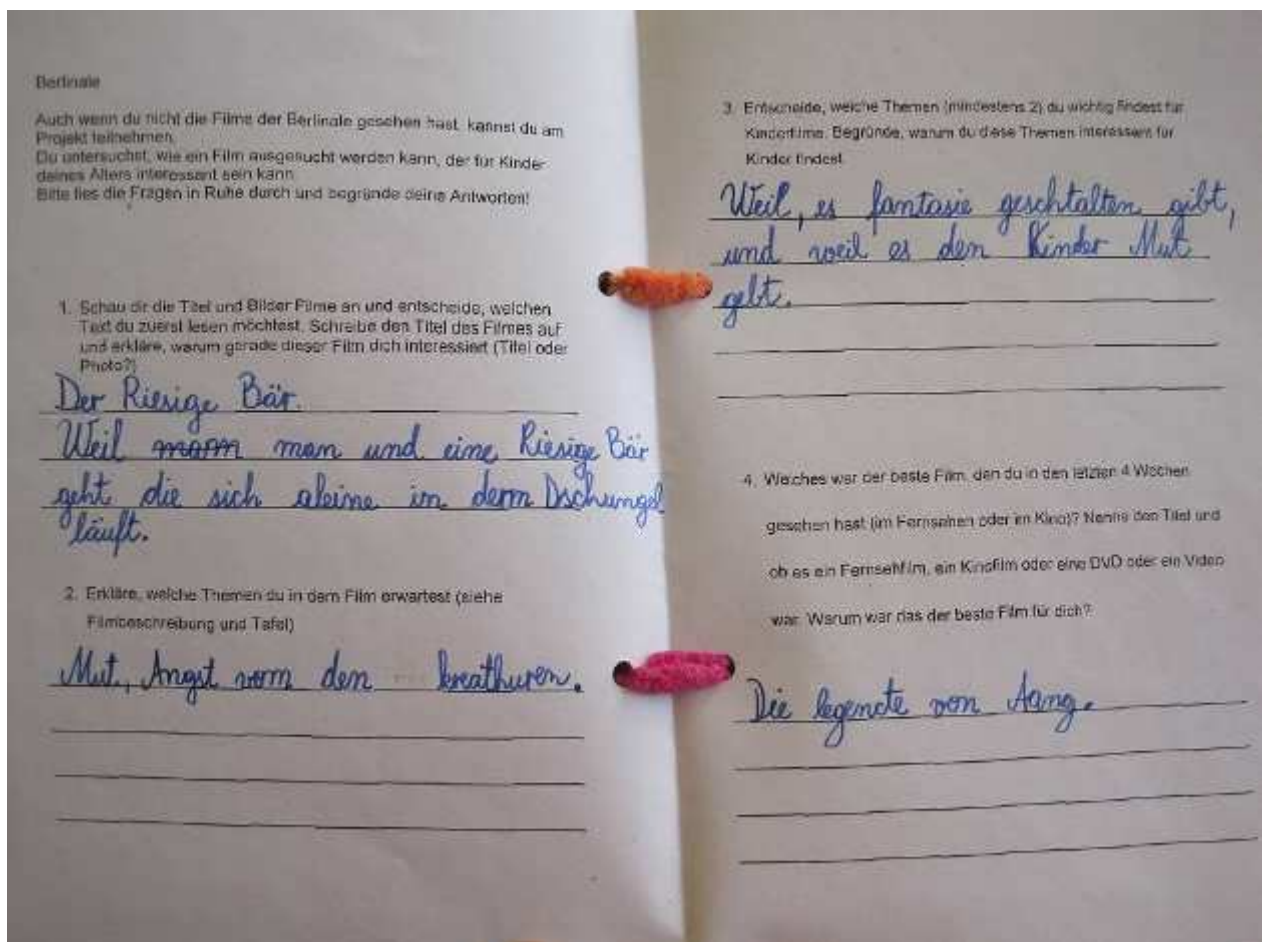 Berlinale
Auch wenn du nicht die Filme der Berlinale gesehen hast, kannst du am
Projekt teilnehmen.
Du untersuchst, wie ein Film ausgesucht werden kann, der für Kinder
deines Alters interessant sein kann.
Bitte lies die Fragen in Ruhe durch und begründe deine Antworten!
1. Schau dir die Titel und Bilder Filme an und entscheide, welchen
Text du zuerst lesen möchtest. Schreibe den Titel des Filmes auf
und erkläre, warum gerade dieser Film dich interessiert (Titel oder
Photo?)
Der Riesige Bär.
Weil mann man und eine Riesige Bär
geht die sich aleine im derm Dschungel
läuft.
2. Erkläre, welche Themen du in dem Film erwartest (siehe
Filmbeschreibung und Tafel)
Mut, Angst vorm den kreathuren.
3. Entscheide, welche Themen (mindestens 2) du wichtig findest für
Kinderfilme. Begründe, warum du diese Themen interessant für
Kinder findest.
Weil, es fantasie geschtalten gibt,
und weil es den Kinder Mut
gibt.
4. Welches war der beste Film, den du in den letzten 4 Wochen
gesehen hast (im Fernsehen oder im Kino)? Nenne den Titel und
ob es ein Fernsehfilm, ein Kinofilm oder eine DVD oder ein Video
war. Warum war das der beste Film für dich?
Die legende von Aang.